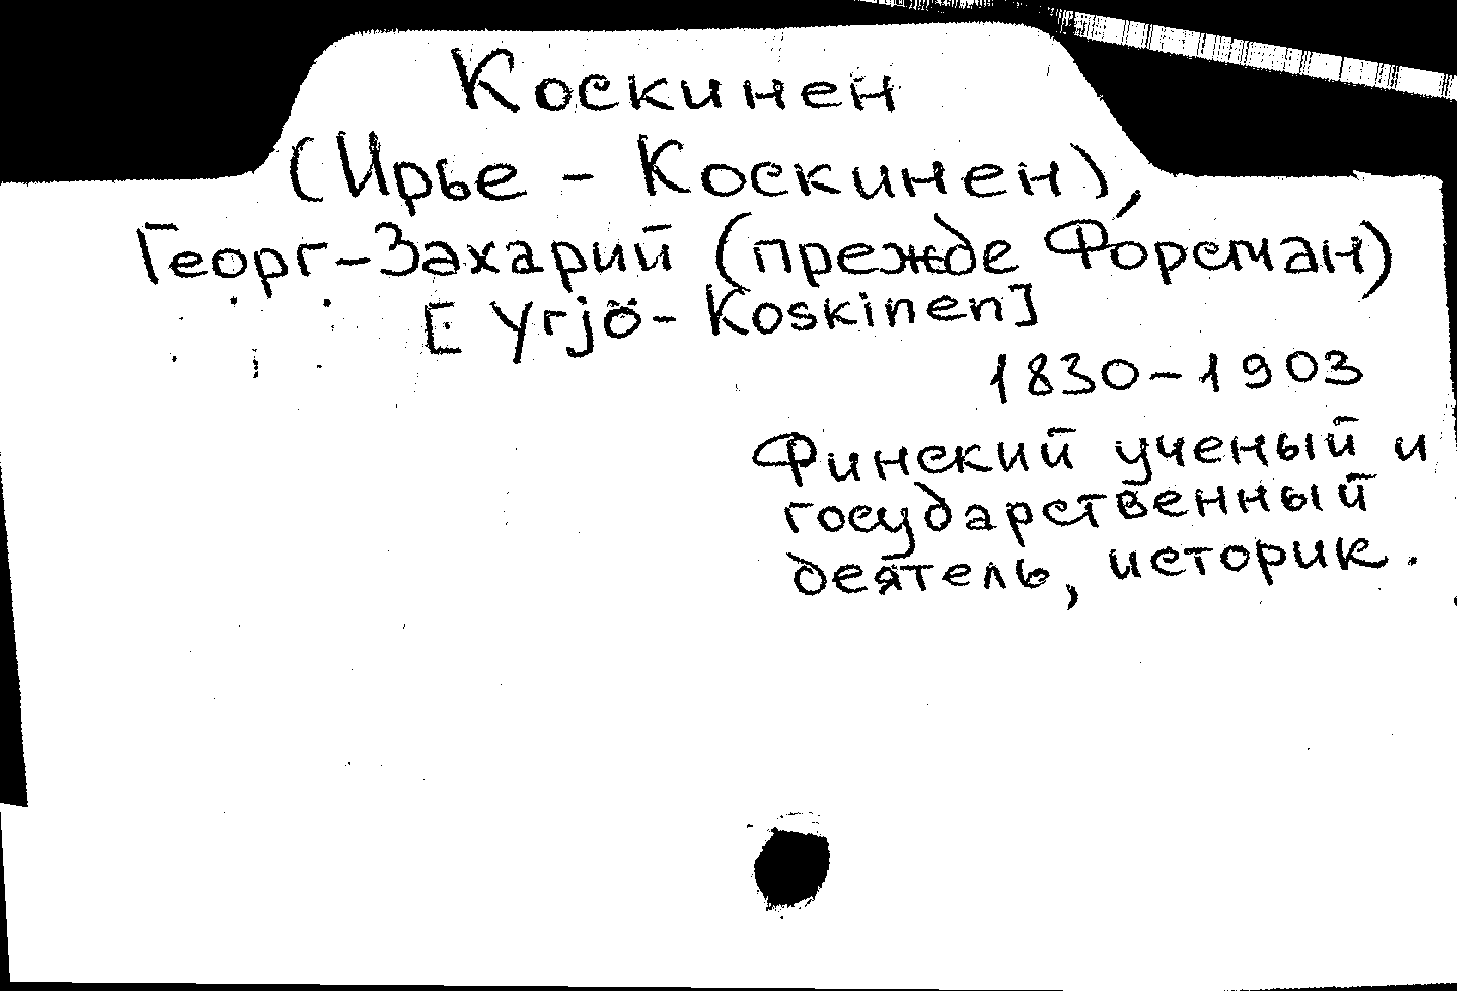 Коскинен
(Ирье - Коскинен),
Георг-Захарий (прежде Форсман)
[Yrjö-Koskinen]
1830-1903
Финский ученый и
государственный
деятель, историк.